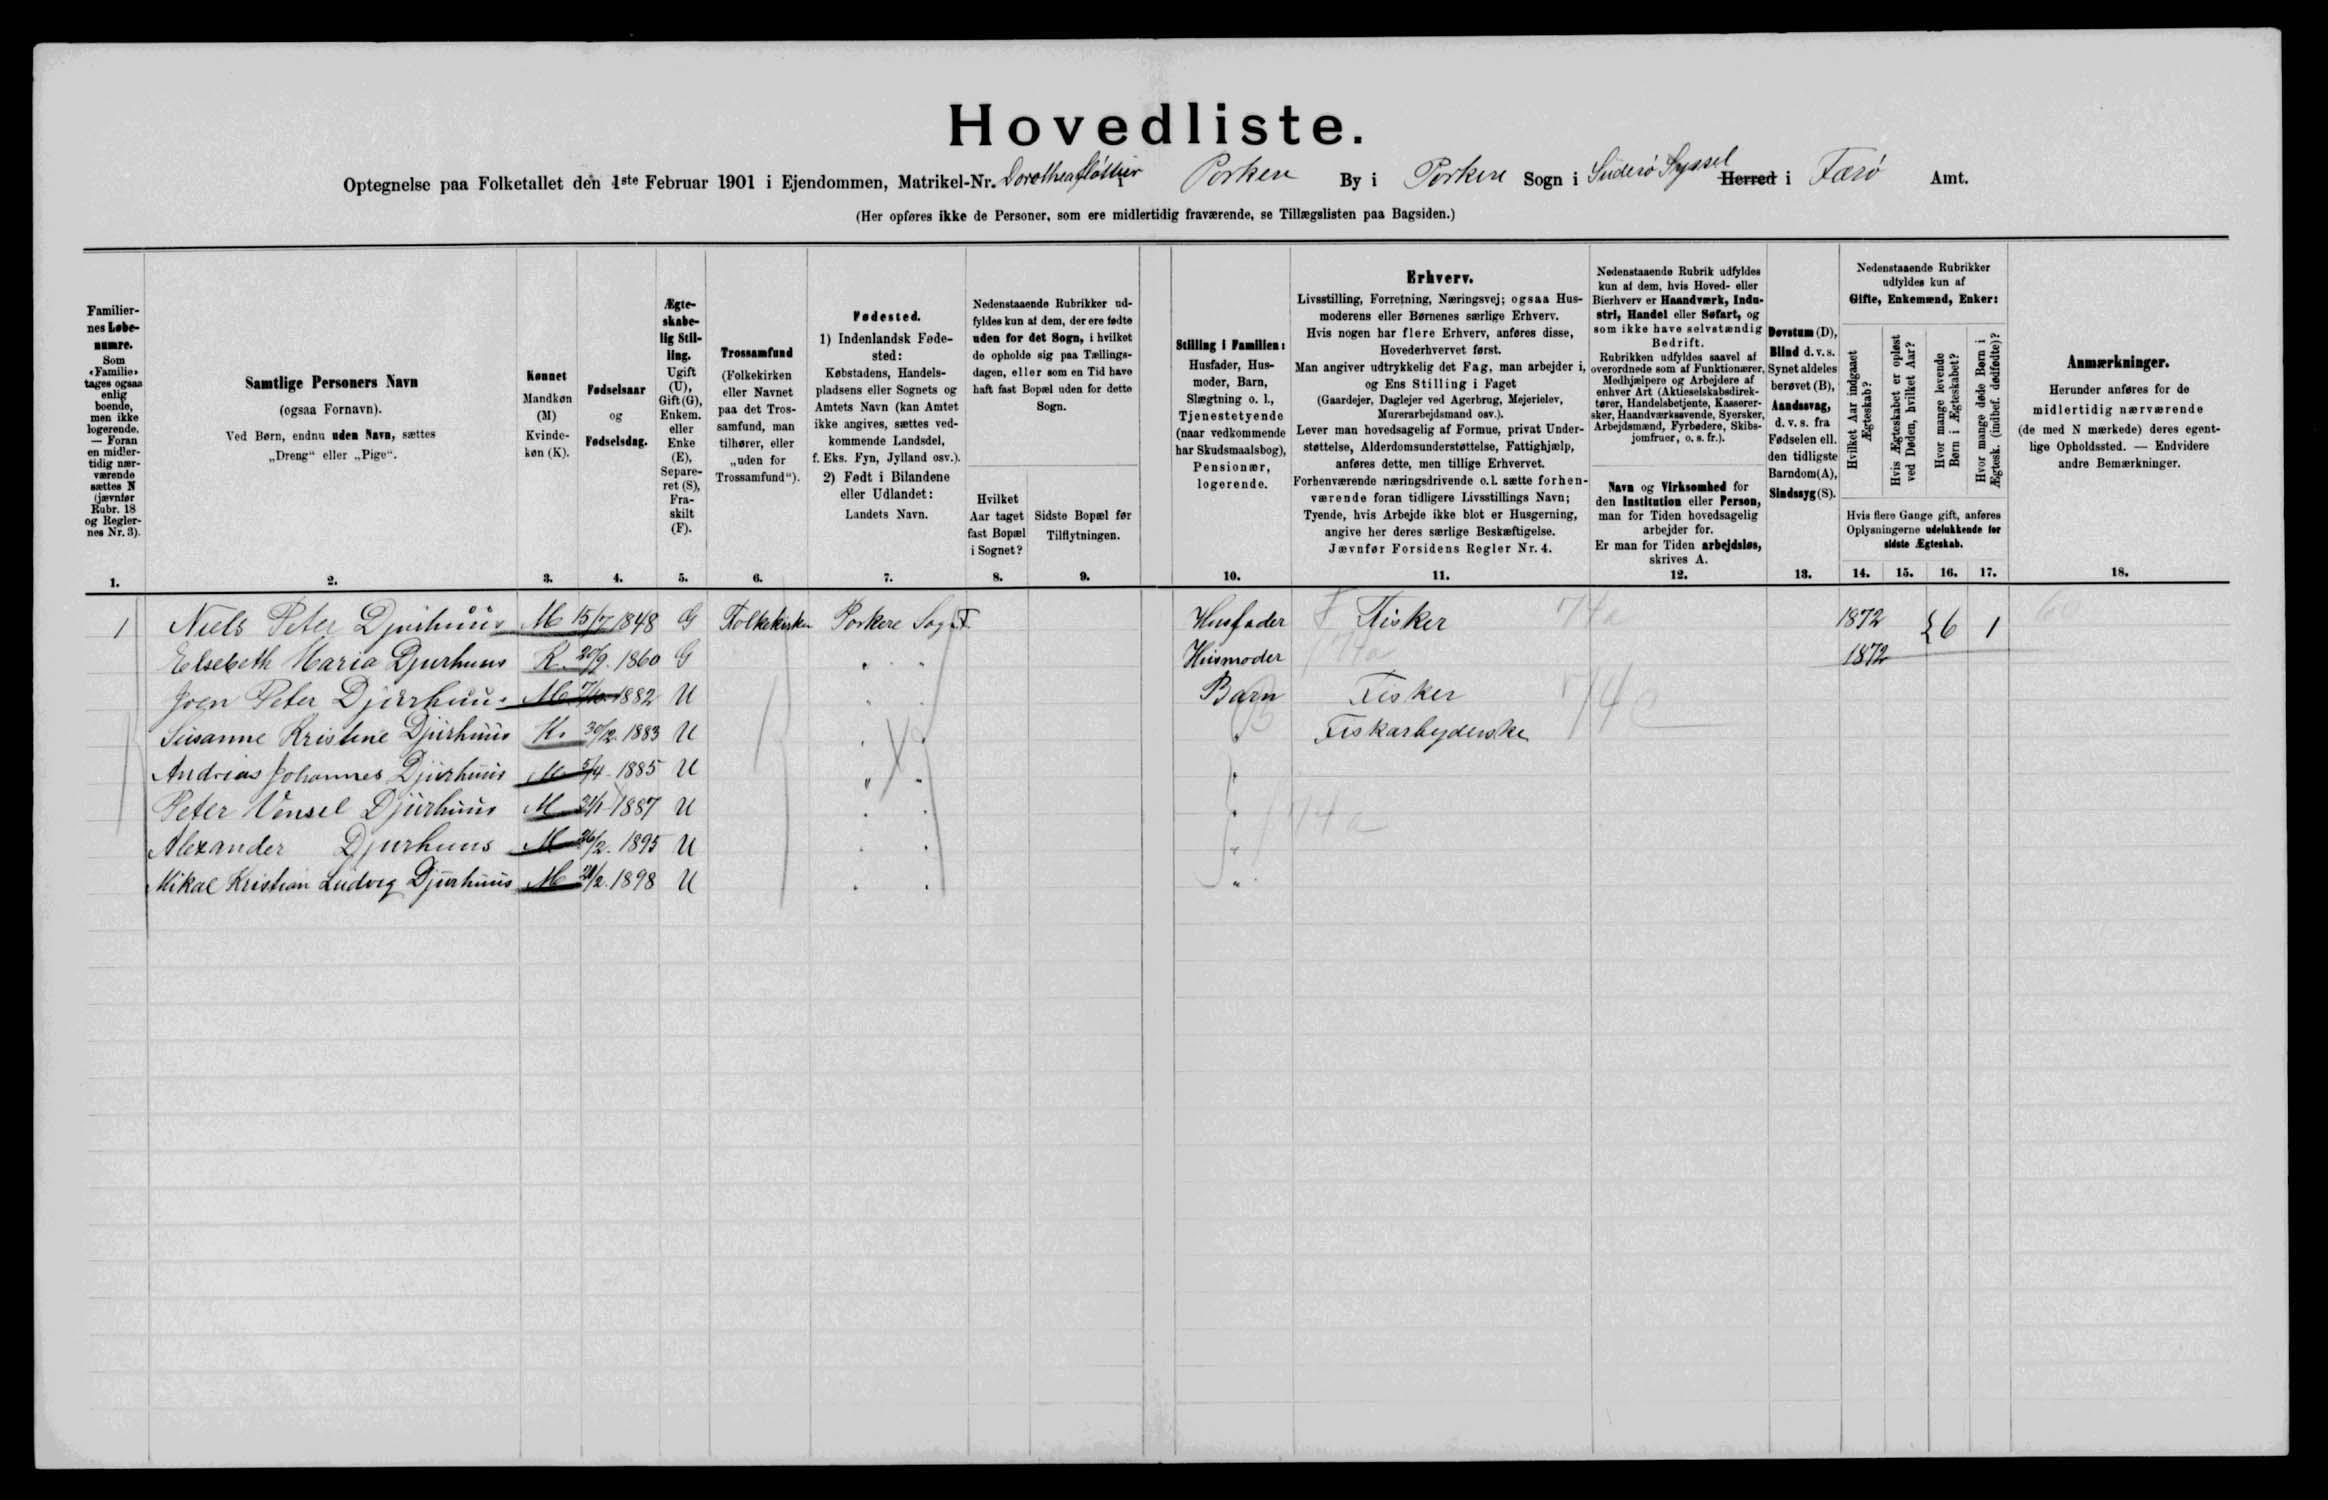 Hovedliste.
Optegnelse paa Folketallet den 1ste Februar 1901 i Ejendommen, Matrikel-Nr. Porkere By i Porkere Sogn i Suderø Syssel Herred i Færø Amt.
(Her opføres ikke de Personer, som ere midlertidig fraværende, se Tillægslisten paa Bagsiden.)
Familiernes Løbenumre.
Som «Familie» tages ogsaa enlig boende, men ikke logerende. — Foran en midlertidig nærværende sættes N (jævnfør Rubr. 18 og Reglernes Nr. 3).
1.
Samtlige Personers Navn
(ogsaa Fornavn).
Ved Børn, endnu uden Navn, sættes
„Dreng“ eller „Pige“.
2.
Kønnet
Mandkøn
(M)
Kvinde-
køn (K).
3.
Fødselsaar
og
Fødselsdag.
4.
Ægte-
skabe-
lig Stil-
ling.
Ugift
(U),
Gift (G),
Enkem.
eller
Enke
(E),
Separe-
ret (S),
Fra-
skilt
(F).
5.
Trossamfund
(Folkekirken
eller Navnet
paa det Tros-
samfund, man
tilhører, eller
„uden for
Trossamfund“).
6.
Fødested.
1) Indenlandsk Føde-
sted:
Købstadens, Handels-
pladsens eller Sognets og
Amtets Navn (kan Amtet
ikke angives, sættes ved-
kommende Landsdel,
f. Eks. Fyn, Jylland osv.).
2) Født i Bilandene
eller Udlandet:
Landets Navn.
7.
Nedenstaaende Rubrikker ud-
fyldes kun af dem, der ere fødte
uden for det Sogn, i hvilket
de opholde sig paa Tællings-
dagen, eller som en Tid have
haft fast Bopæl uden for dette
Sogn.
Hvilket
Aar taget
fast Bopæl
i Sognet?
8.
Sidste Bopæl før
Tilflytningen.
9.
Stilling i Familien:
Husfader, Hus-
moder, Barn,
Slægtning o. l.,
Tjenestetyende
(naar vedkommende
har Skudsmaalsbog),
Pensionær,
logerende.
10.
Erhverv.
Livsstilling, Forretning, Næringsvej; ogsaa Hus-
moderens eller Børnenes særlige Erhverv.
Hvis nogen har flere Erhverv, anføres disse,
Hovederhvervet først.
Man angiver udtrykkelig det Fag, man arbejder i,
og Ens Stilling i Faget
(Gaardejer, Daglejer ved Agerbrug, Mejerielev,
Murerarbejdsmand osv.).
Lever man hovedsagelig af Formue, privat Under-
støttelse, Alderdomsunderstøttelse, Fattighjælp,
anføres dette, men tillige Erhvervet.
Forhenværende næringsdrivende o. l. sætte forhen-
værende foran tidligere Livsstillings Navn;
Tyende, hvis Arbejde ikke blot er Husgerning,
angive her deres særlige Beskæftigelse.
Jævnfør Forsidens Regler Nr. 4.
11.
Nedenstaaende Rubrik udfyldes
kun af dem, hvis Hoved- eller
Bierhverv er Haandværk, Indu-
stri, Handel eller Søfart, og
som ikke have selvstændig
Bedrift.
Rubrikken udfyldes saavel af
overordnede som af Funktionærer,
Medhjælpere og Arbejdere af
enhver Art (Aktieselskabsdirek-
tører, Handelsbetjente, Kasserer-
sker, Haandværkssvende, Syersker,
Arbejdsmænd, Fyrbødere, Skibs-
jomfruer, o. s. fr.).
Navn og Virksomhed for
den Institution eller Person,
man for Tiden hovedsagelig
arbejder for.
Er man for Tiden arbejdsløs,
skrives A.
12.
Døvstum (D),
Blind d. v. s.
Synet aldeles
berøvet (B),
Aandssvag,
d. v. s. fra
Fødselen ell.
den tidligste
Barndom (A),
Sindssyg (S).
13.
Nedenstaaende Rubrikker
udfyldes kun af
Gifte, Enkemænd, Enker:
Hvilket Aar indgaaet Ægteskab?
Hvis Ægteskabet er opløst ved Døden, hvilket Aar?
Hvor mange levende Børn i Ægteskabet?
Hvor mange døde Børn i Ægtesk. (indbef. dødfødte)?
Hvis flere Gange gift, anføres
Oplysningerne udelukkende for
sidste Ægteskab.
14. 15. 16. 17.
Anmærkninger.
Herunder anføres for de
midlertidig nærværende
(de med N mærkede) deres egent-
lige Opholdssted. — Endvidere
andre Bemærkninger.
18.
1 Niels Peter Djurhuus M 15/7 1848 G Folkekirken Porkere Sogn F. Husfader Fisker 74a 1872 6 1
Elsebeth Maria Djurhuus K. 20/9. 1860 G " " Husmoder 1872
Joen Peter Djurhuus M 7/10 1882 U " " Barn Fisker 74c
Susanne Kristine Djurhuus K. 30/12. 1883 U " " " Fiskarbyderske
Andrias Johannes Djurhuus M 5/4 1885 U " " "
Peter Vensel Djurhuus M 21/1 1887 U " " " 74a
Alexander Djurhuus M 26/2. 1895 U " " "
Mikal Kristian Ludvig Djurhuus M 20/2. 1898 U " " "